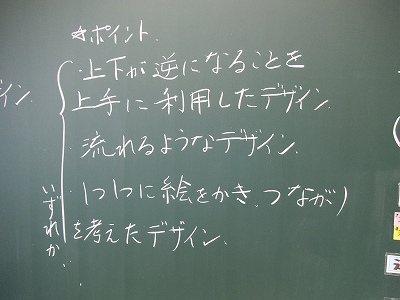 ☆ポイント.
・上下が逆になることを
上手に利用したデザイン.
・流れるようなデザイン.
・1つ1つに絵をかき、つながり
を考えたデザイン.
いずれか.
イン.